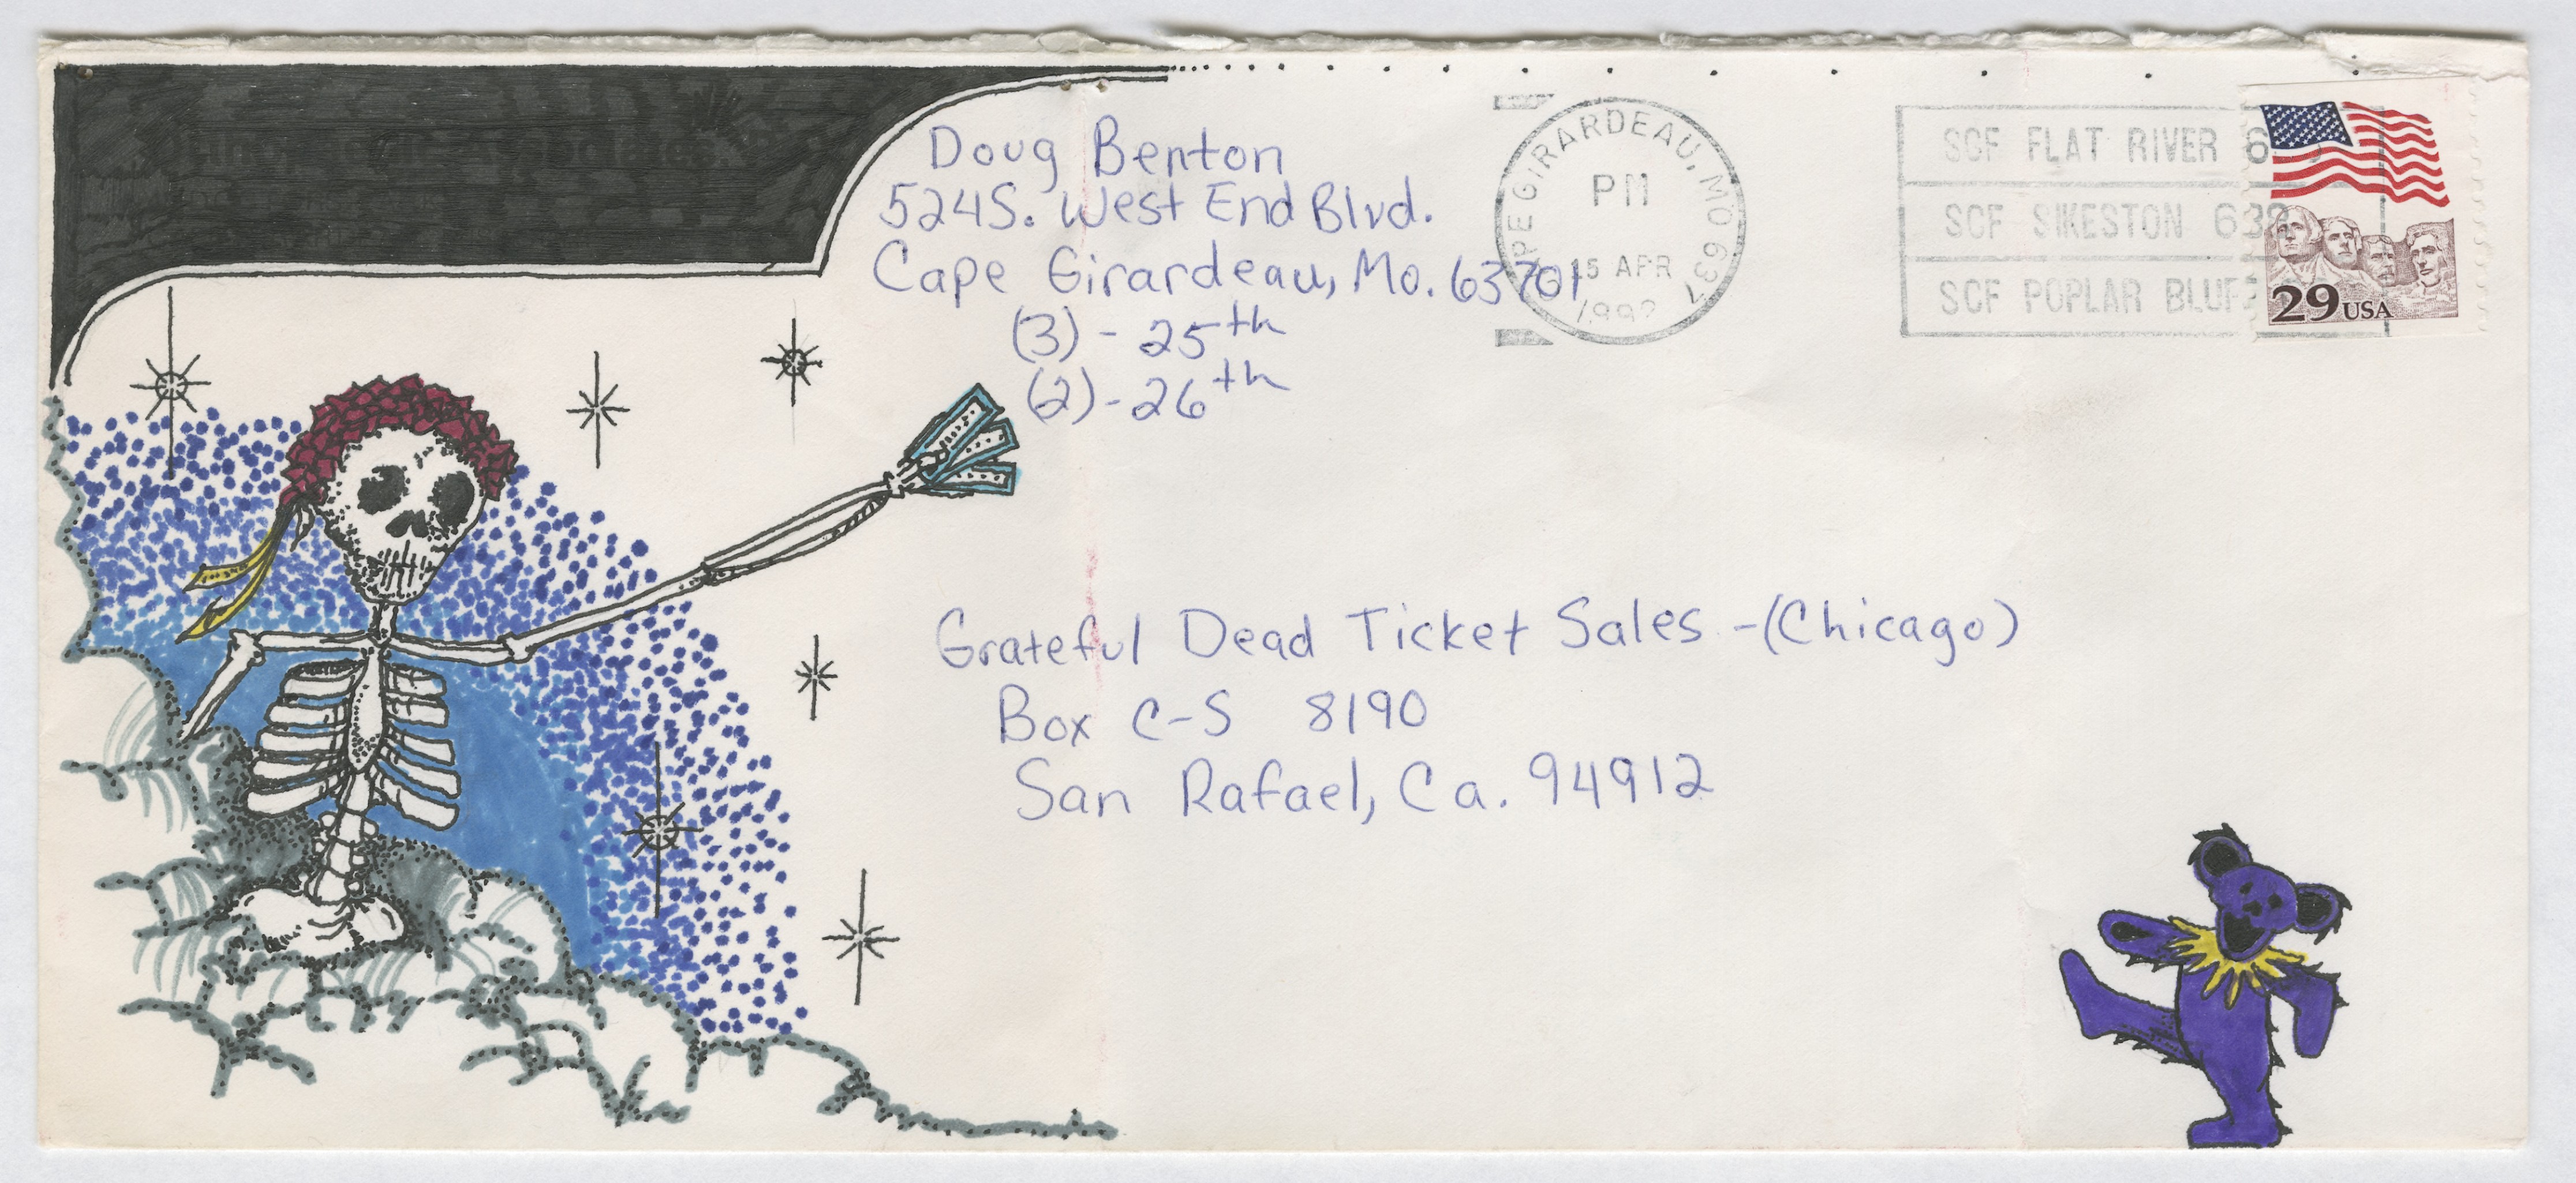 Doug Benton
524 S. West End Blvd.
Cape Girardeau, Mo. 63701
(3) - 25th
(2) - 26th
PE GIRARDEAU, MO 637
PM
15 APR
1992
SCF FLAT RIVER
SCF SIKESTON 638
SCF POPLAR BLUFF
29 USA
Grateful Dead Ticket Sales - (Chicago)
Box C-S 8190
San Rafael, Ca. 94912